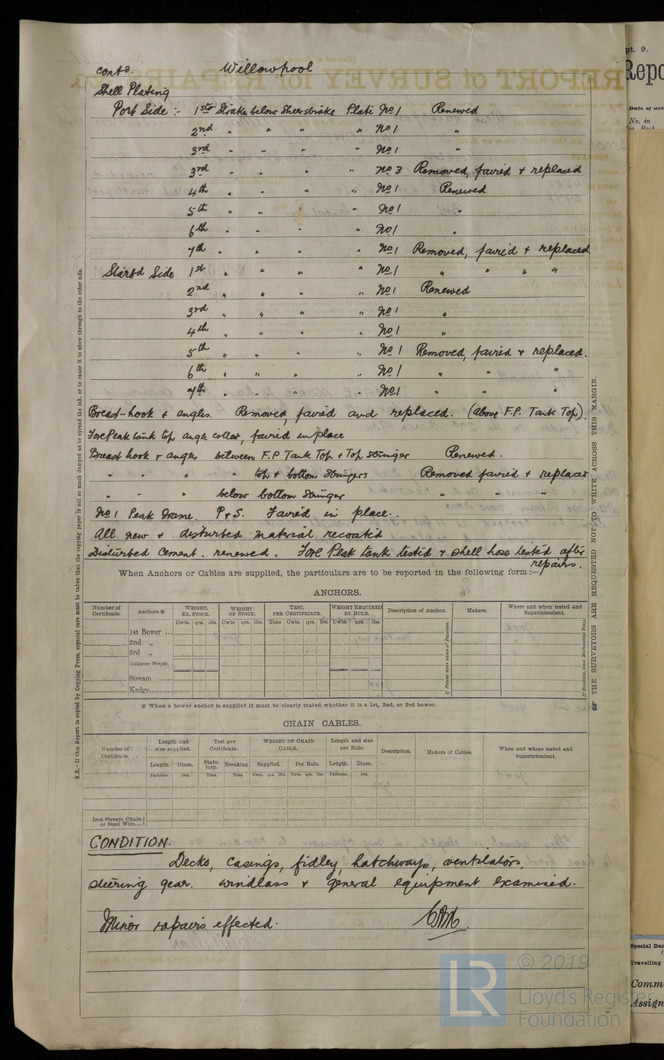 contd. Willowpool
Shell Plating
Port Side :- 1st Strake below Sheerstrake Plate No 1 Renewed
2nd " " " " No 1 "
3rd " " " " No 1 "
3rd " " " " No 3 Removed, faired & replaced
4th " " " " No 1 Renewed
5th " " " " No 1 "
6th " " " " No 1 "
7th " " " " No 1 Removed, faired & replaced
Starbd Side 1st " " " " No 1 " " " "
2nd " " " " No 1 Renewed
3rd " " " " No 1 "
4th " " " " No 1 "
5th " " " " No 1 Removed, faired & replaced.
6th " " " " No 1 " " "
7th " " " " No 1 " " "
Breast-hook & angles. Removed, faired and replaced. (above F.P. Tank Top).
Fore Peak tank top angle collar, faired in place
Breast hook & angles between F.P Tank Top & Top stringer Renewed.
" " " " top & bottom Stringers Removed faired & replaced
" " " below bottom Stringer " " "
No 1 Peak Frame. P & S. Faired in place.
All new & disturbed material recoated
Disturbed Cement. renewed. Fore Peak tank tested & shell hose tested after
repairs.
When Anchors or Cables are supplied, the particulars are to be reported in the following form:—
ANCHORS.
Number of Certificate. Anchors.※ WEIGHT, EX. STOCK. WEIGHT OF STOCK. TEST, PER CERTIFICATE. WEIGHT REQUIRED BY RULE. Description of Anchor. Makers. Where and when tested and Superintendent.
Cwts. qrs. lbs. Cwts. qrs. lbs. Tons Cwts. qrs. lbs. Cwts. qrs. lbs.
1st Bower ...
2nd "
3rd "
Collective Weight.
Stream ......
Kedge.........
※ When a bower anchor is supplied it must be clearly stated whether it is a 1st, 2nd, or 3rd bower.
CHAIN CABLES.
Number of Certificate. Length and size supplied. Test per Certificate. WEIGHT OF CHAIN CABLE. Length and size per Rule. Description. Makers of Cables. When and where tested and Superintendent.
Length. Diam. Statutory. Breaking. Supplied. Per Rule. Length. Diam.
Fathoms. Ins. Tons. Tons. Cwts. qrs. lbs. Cwts. qrs. lbs. Fathoms. Ins.
Iron Stream Chain or Steel Wire....
CONDITION.
Decks, casings, fidley, hatchways, ventilators,
steering gear. windlass & general equipment examined.
Minor repairs effected.
THE SURVEYORS ARE REQUESTED NOT TO WRITE ACROSS THIS MARGIN.
pt. 9.
Repo
No. in
Special Da
Travelling
Comm
Assign
LR © 2019
Lloyd's Register
Foundation